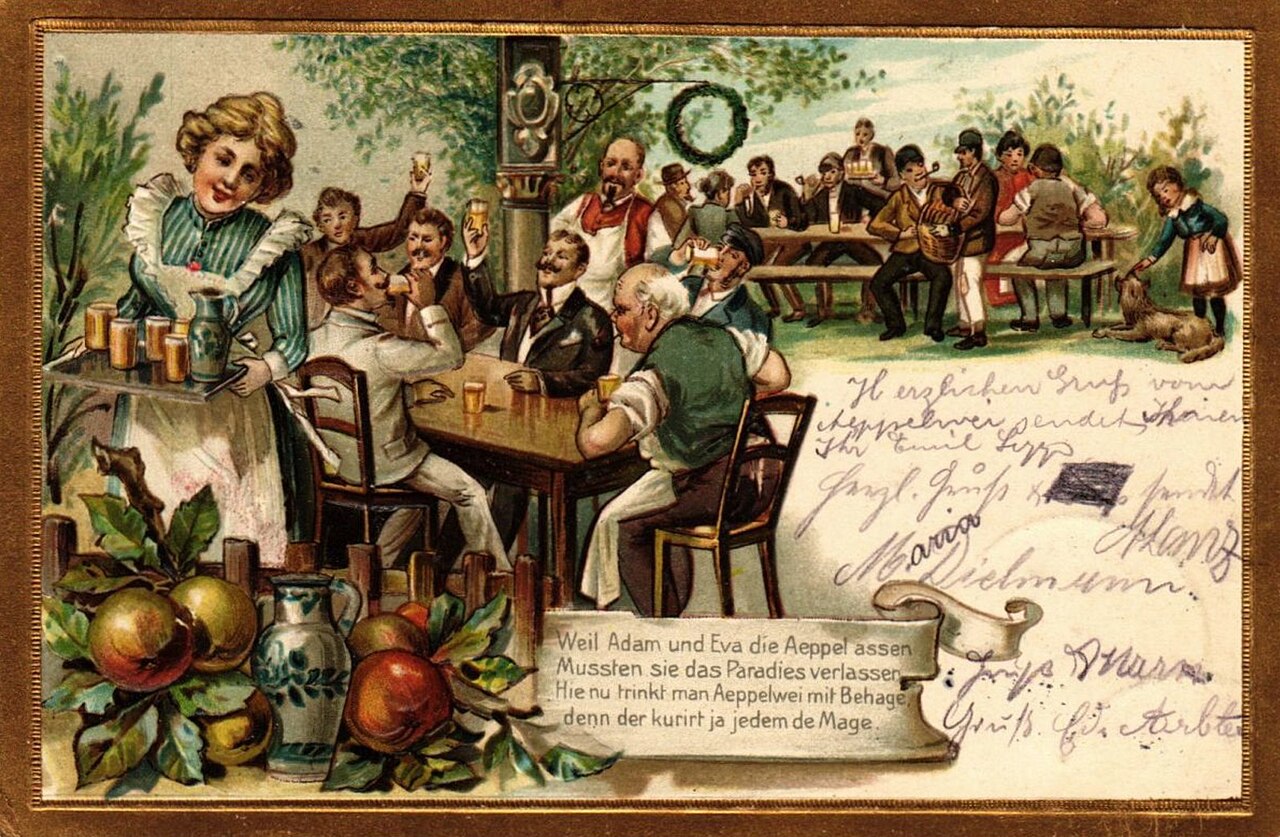 Herzlichen Gruß vom
Aeppelwei sendet Ihnen
Ihr Emil
Herzl. Gruß sendet
Maria Dielmann.
Weil Adam und Eva die Aeppel assen
Mussten sie das Paradies verlassen,
Hie nu trinkt man Aeppelwei mit Behage,
denn der kurirt ja jedem de Mage.
Gruß
Gruß Ed.